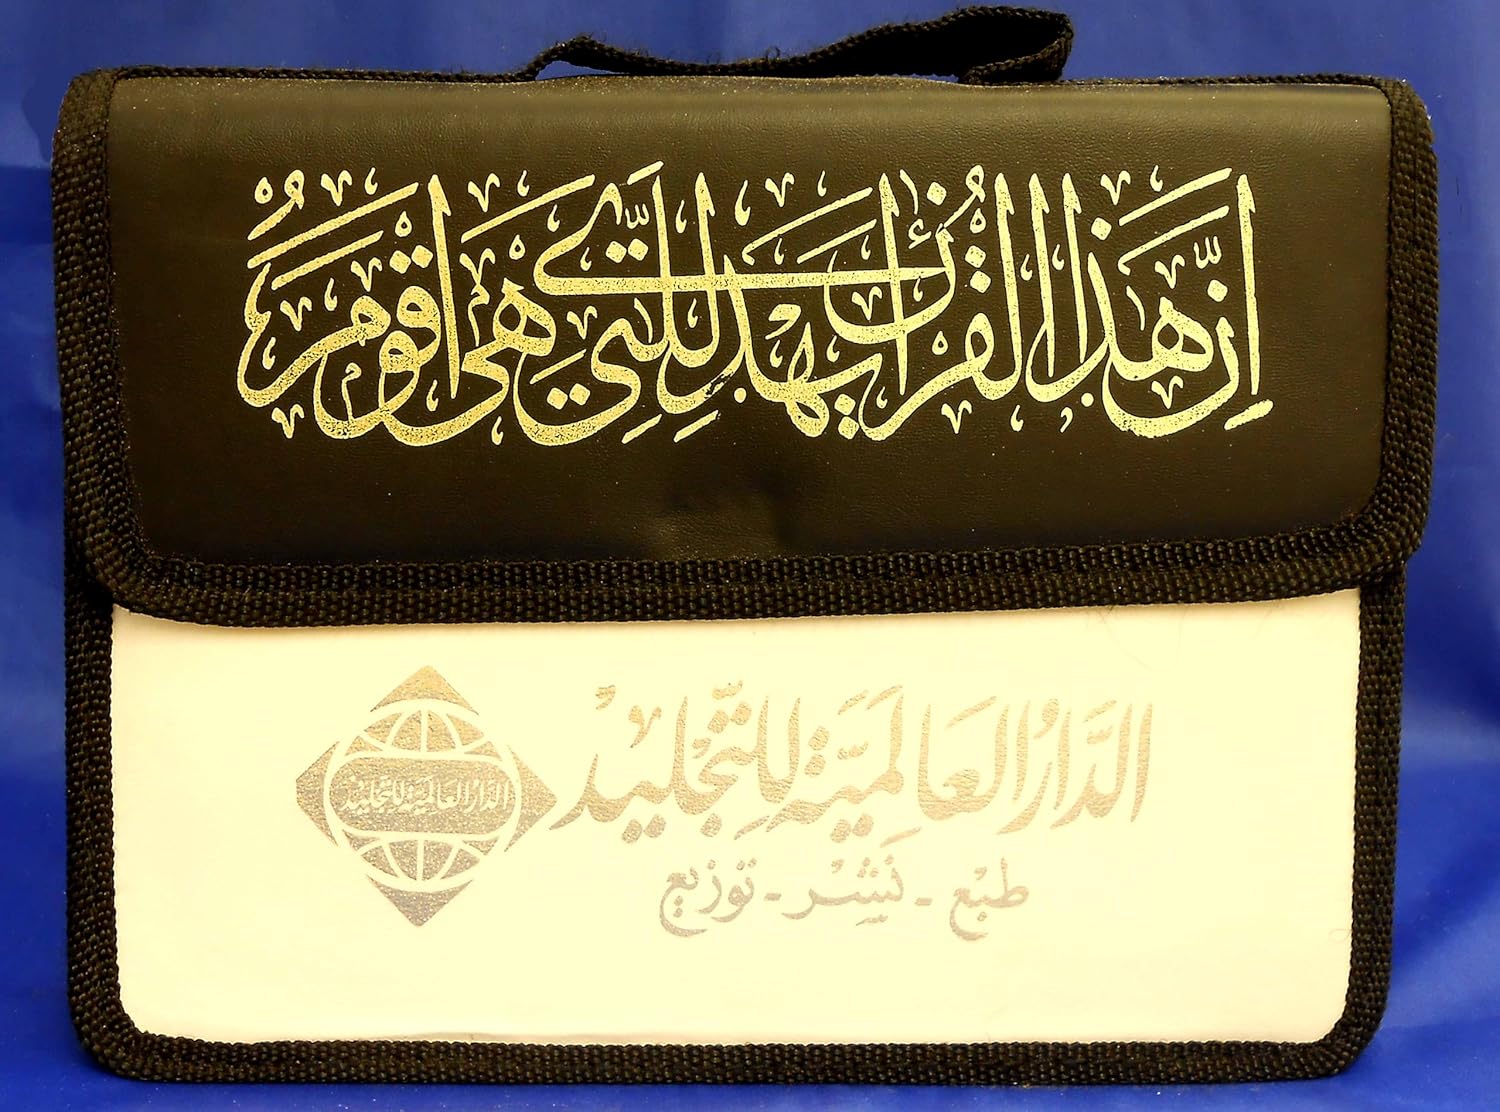 إِنَّ هَذَا الْقُرْآنَ يَهْدِي لِلَّتِي هِيَ أَقْوَمُ
الدَّارُ الْعَالَمِيَّةُ لِلتَّجْلِيدِ
الدار العالمية للتجليد
طبع - نشر - توزيع